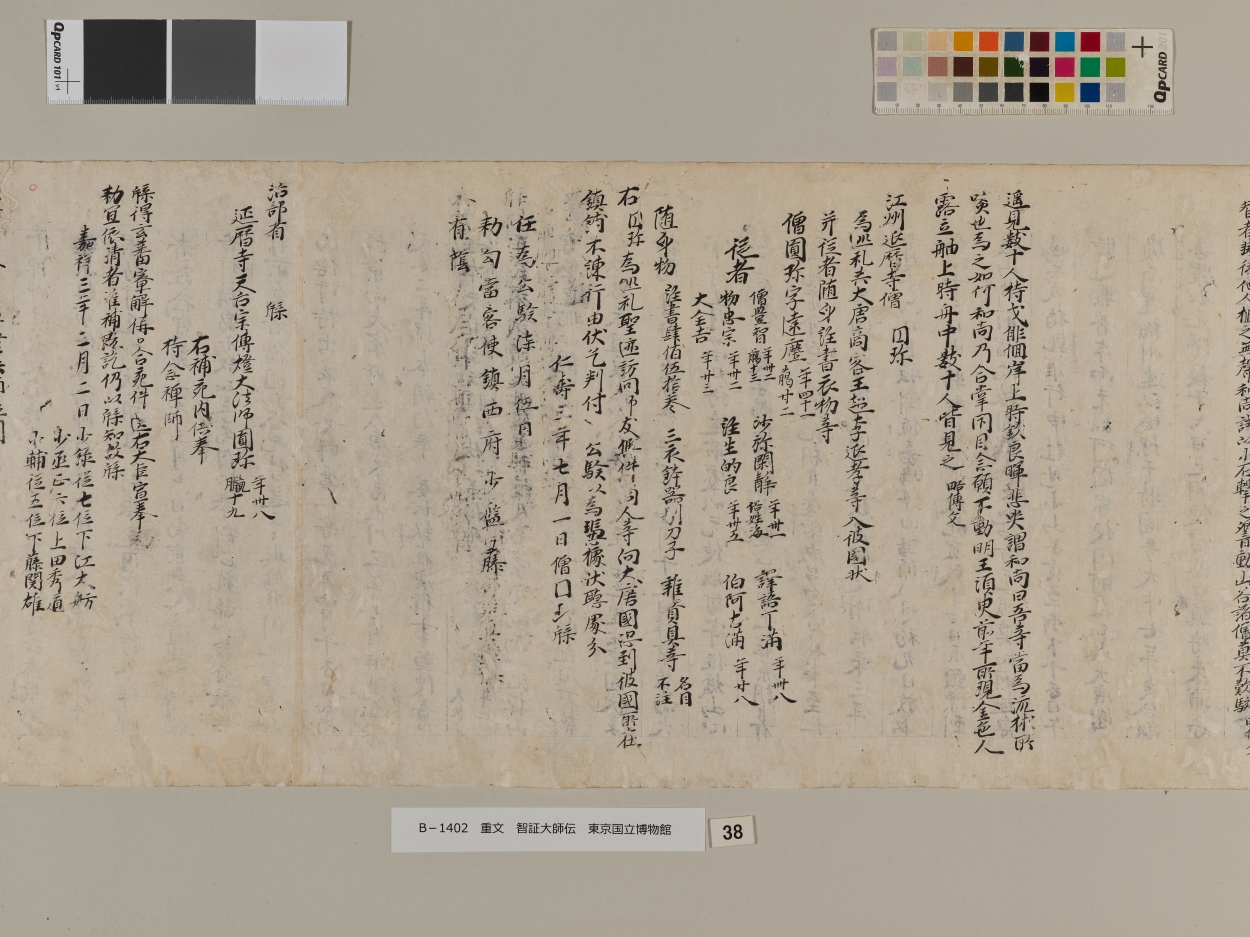 遥見數十人持戈徘徊岸上時欽良暉悲哭謂和尚曰吾等當為流梂所
噉也為之如何和尚乃合掌閇目念願不動明王須臾前年所現金色人
露立舳上時舟中數十人皆見之 略傳文
江州延暦寺僧 円珎
為巡礼共大唐商客王超李延孝等入彼國状
并従者随身経書衣物等
僧圓珎字遠塵 年四十一 臈廿二
従者 僧豊智 年卅三 臈十三 沙弥閑静 年卅一 譯語丁満 年卅八
物忠宗 年卅二 経生的良 年卅五 伯阿古満 年廿八
大全吉 年廿三
随身物 経書肆佰伍拾巻 三衣鉢器剔刀子 雜資具等 名目不註
右円珎為巡礼聖迹訪問師友與件商人等向大唐國恐到彼國所在
鎮鋪不練行由伏乞判付 公験以為憑據伏聴處分
仁壽三年七月一日僧円珎牒
任為公験漆月伍日
勅勾當客使鎮西府少監藤
有蔭
治部省 牒
延暦寺天台宗傳燈大法師圓珎 年卅八 臈十九
右補充内供奉
持念禅師
牒得玄蕃寮解偁合充件 右大臣宣奉
勅宜依請者准補既訖仍以牒知故牒
嘉祥三年三月二日少録従七位下江大舫
少丞正六位上田秀道
少輔従五位下藤関雄
B－1402 重文 智証大師伝 東京国立博物館
38
QpCARD 101
QpCARD 201